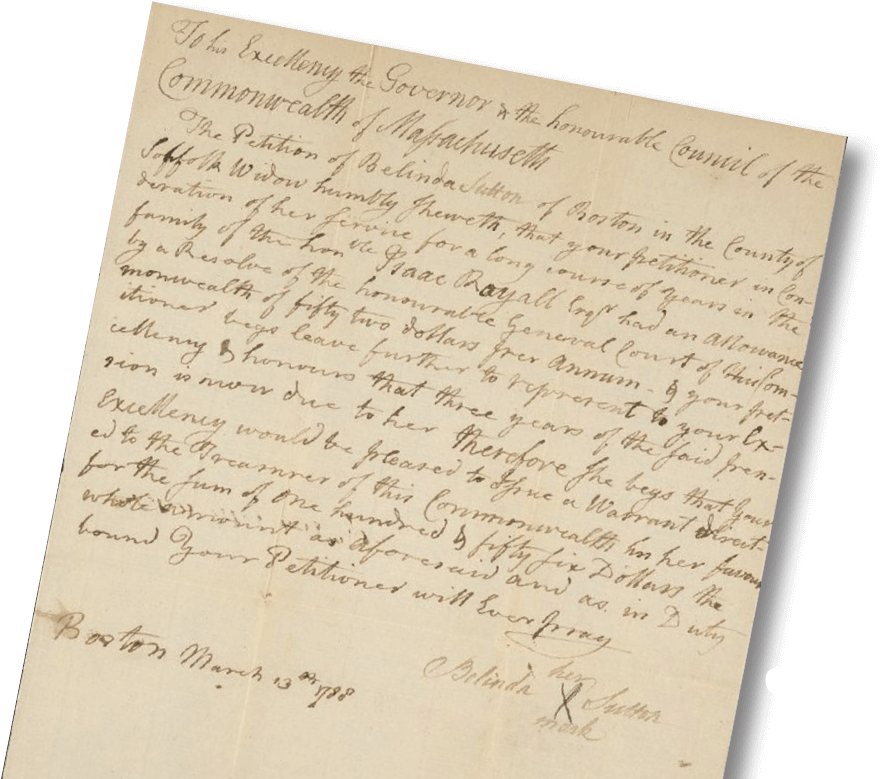 To his Excellency the Governor & the honourable Council of the
Commonwealth of Massachusetts
The Petition of Belinda Sutton of Boston in the County of
Soffolk Widow humbly sheweth, that your petitioner in Con-
sideration of her service for a long course of years in the
family of the honble Isaac Royall Esqr had an Allowance
by a Resolve of the honourable General Court of this Com-
monwealth of fifty two dollars per Annum - & your pet-
itioner begs leave further to represent to your Ex-
cellency & honours that three years of the said pen-
sion is now due to her therefore she begs that your
Excellency would be pleased to Issue a Warrant direct-
ed to the Treasurer of this Commonwealth in her favour
for the sum of One hundred & fifty six Dollars the
whole amount as aforesaid and as in Duty
bound Your Petitioner will Ever pray
Boston March 13th 1788
her
Belinda X Sutton
mark